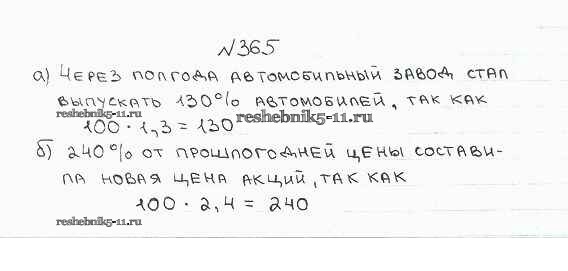 №365
а) Через полгода автомобильный завод стал
выпускать 130% автомобилей, так как
reshebnik5-11.ru
100 · 1,3 = 130
reshebnik5-11.ru
б) 240% от прошлогодней цены состави-
ла новая цена акций, так как
100 · 2,4 = 240
reshebnik5-11.ru